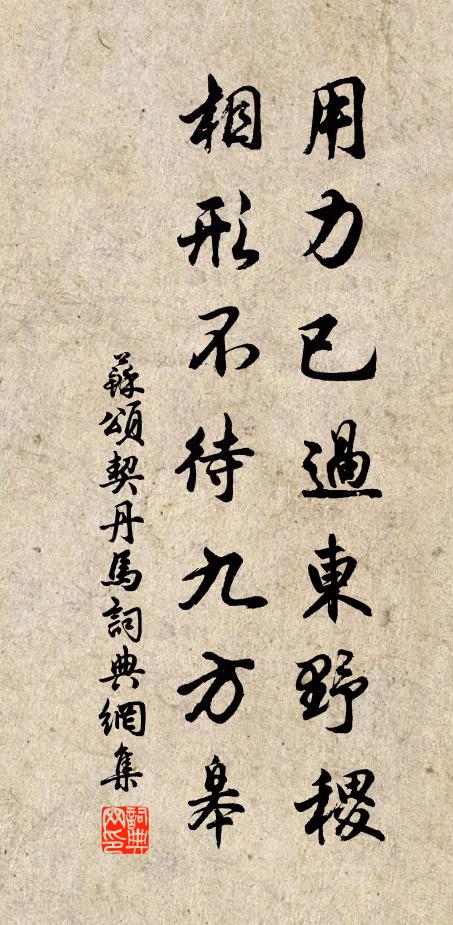 用力已過東野稷
相形不待九方皋
蘇頌契丹馬詞典網集
詞典網印